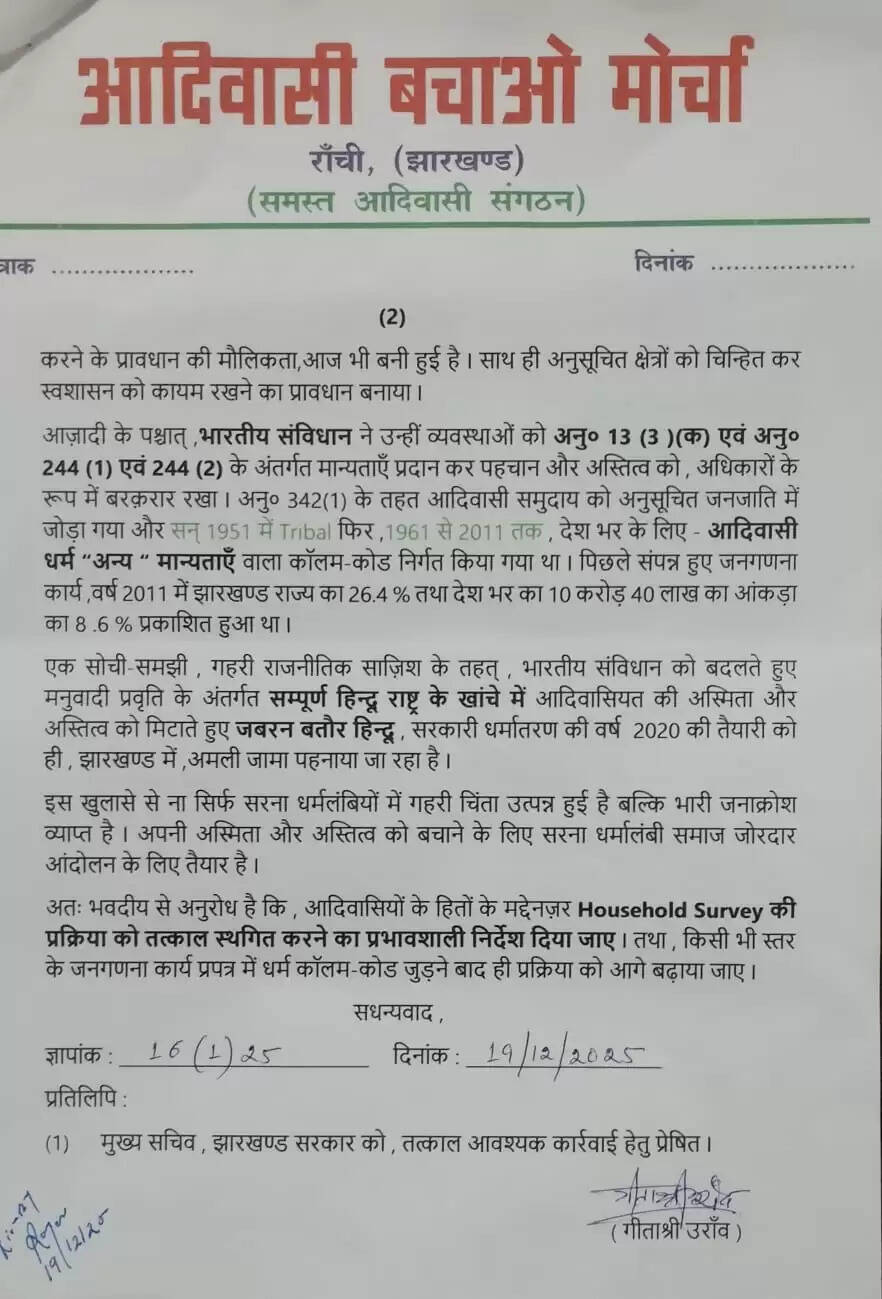 आदिवासी बचाओ मोर्चा
राँची, (झारखण्ड)
(समस्त आदिवासी संगठन)
त्राक ....................
दिनांक ....................
(2)
करने के प्रावधान की मौलिकता,आज भी बनी हुई है । साथ ही अनुसूचित क्षेत्रों को चिन्हित कर
स्वशासन को कायम रखने का प्रावधान बनाया ।
आज़ादी के पश्चात् ,भारतीय संविधान ने उन्हीं व्यवस्थाओं को अनु० 13 (3 )(क) एवं अनु०
244 (1) एवं 244 (2) के अंतर्गत मान्यताएँ प्रदान कर पहचान और अस्तित्व को , अधिकारों के
रूप में बरक़रार रखा । अनु० 342(1) के तहत आदिवासी समुदाय को अनुसूचित जनजाति में
जोड़ा गया और सन् 1951 में Tribal फिर ,1961 से 2011 तक , देश भर के लिए - आदिवासी
धर्म “अन्य “ मान्यताएँ वाला कॉलम-कोड निर्गत किया गया था । पिछले संपन्न हुए जनगणना
कार्य ,वर्ष 2011 में झारखण्ड राज्य का 26.4 % तथा देश भर का 10 करोड़ 40 लाख का आंकड़ा
का 8 .6 % प्रकाशित हुआ था ।
एक सोची-समझी , गहरी राजनीतिक साज़िश के तहत् , भारतीय संविधान को बदलते हुए
मनुवादी प्रवृति के अंतर्गत सम्पूर्ण हिन्दू राष्ट्र के खांचे में आदिवासियत की अस्मिता और
अस्तित्व को मिटाते हुए जबरन बतौर हिन्दू , सरकारी धर्मातरण की वर्ष 2020 की तैयारी को
ही , झारखण्ड में ,अमली जामा पहनाया जा रहा है ।
इस खुलासे से ना सिर्फ सरना धर्मलंबियों में गहरी चिंता उत्पन्न हुई है बल्कि भारी जनाक्रोश
व्याप्त है । अपनी अस्मिता और अस्तित्व को बचाने के लिए सरना धर्मालंबी समाज जोरदार
आंदोलन के लिए तैयार है ।
अतः भवदीय से अनुरोध है कि , आदिवासियों के हितों के मद्देनज़र Household Survey की
प्रक्रिया को तत्काल स्थगित करने का प्रभावशाली निर्देश दिया जाए । तथा , किसी भी स्तर
के जनगणना कार्य प्रपत्र में धर्म कॉलम-कोड जुड़ने बाद ही प्रक्रिया को आगे बढ़ाया जाए ।
सधन्यवाद ,
ज्ञापांक : 16 (1) 25 दिनांक : 19/12/2025
प्रतिलिपि :
(1) मुख्य सचिव , झारखण्ड सरकार को , तत्काल आवश्यक कार्रवाई हेतु प्रेषित ।
(गीताश्री उराँव)
19/12/25